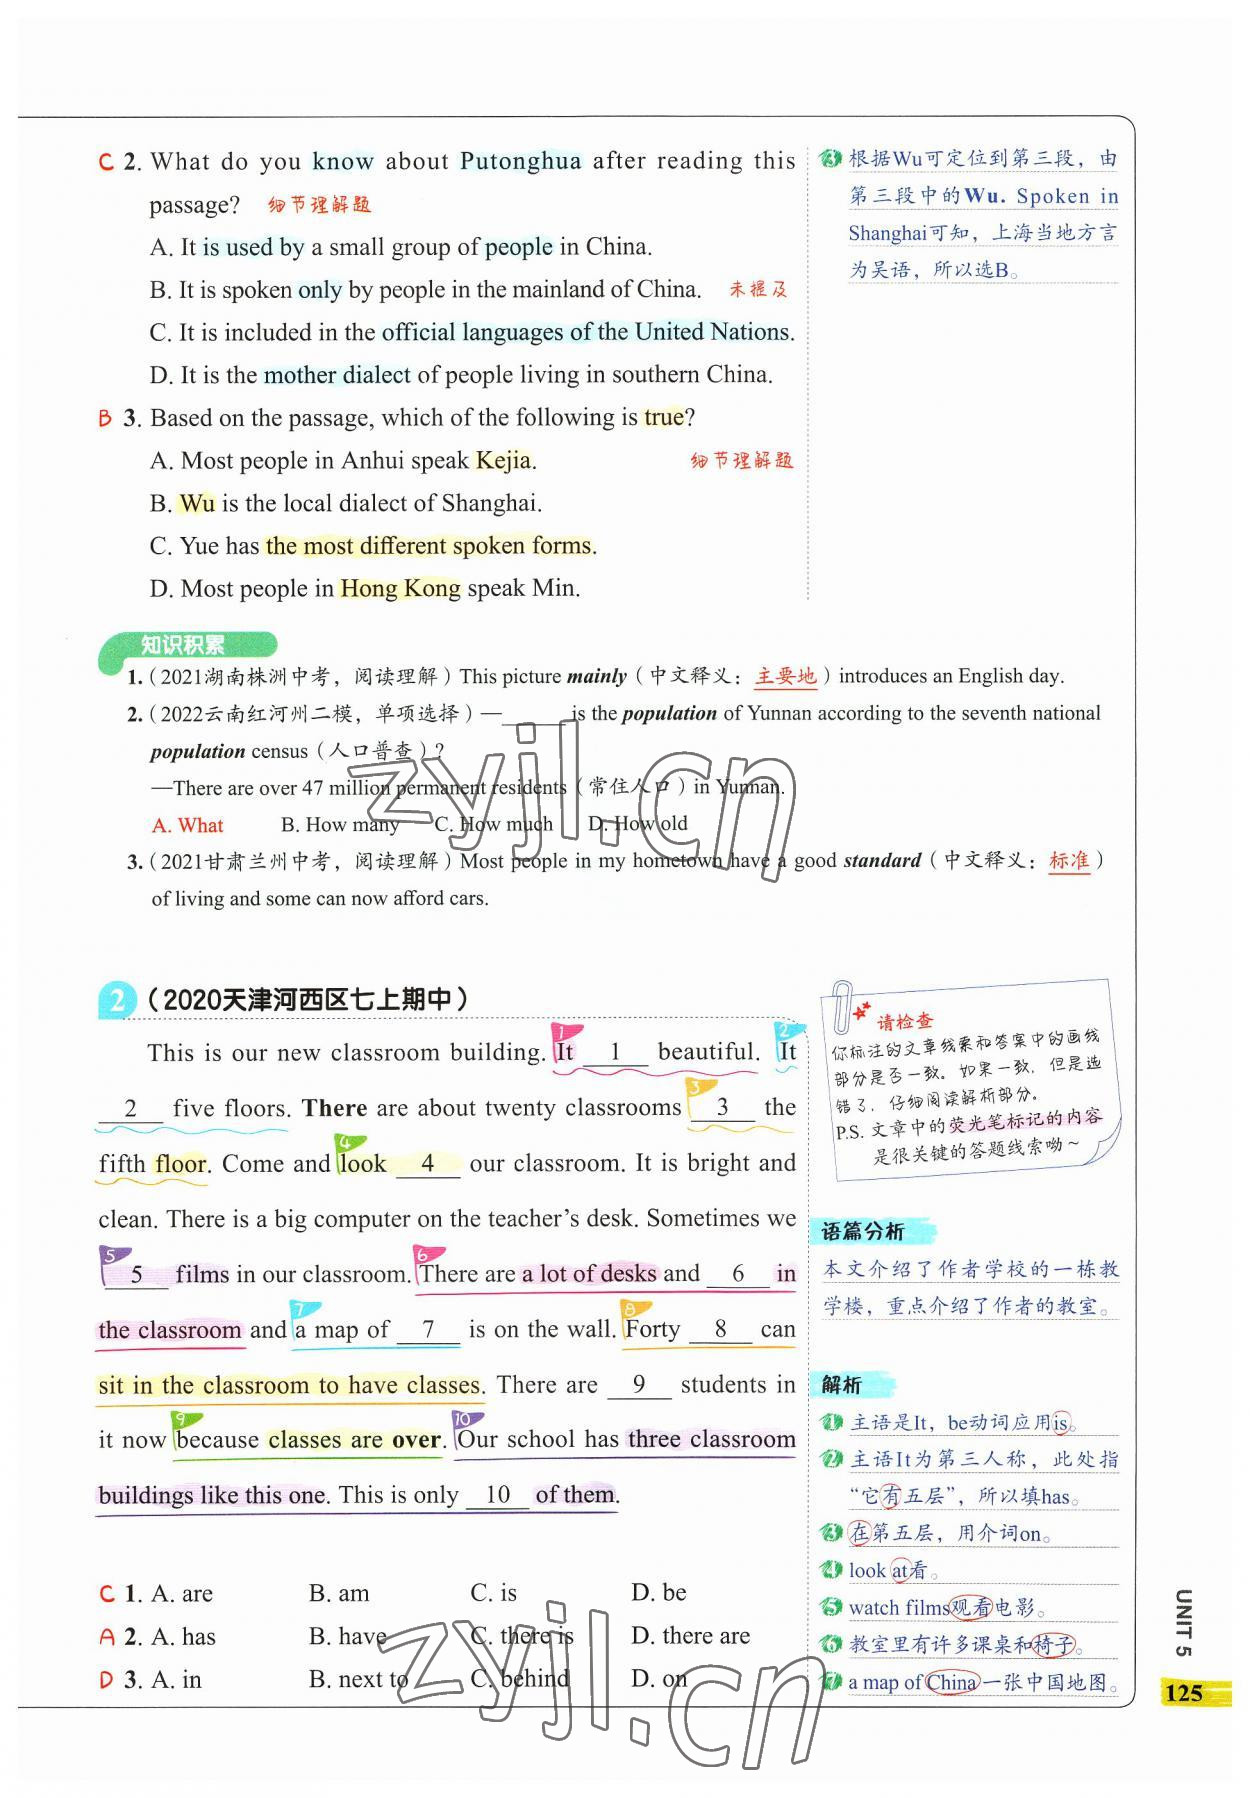 C 2. What do you know about Putonghua after reading this
passage? 细节理解题
A. It is used by a small group of people in China.
B. It is spoken only by people in the mainland of China. 未提及
C. It is included in the official languages of the United Nations.
D. It is the mother dialect of people living in southern China.
B 3. Based on the passage, which of the following is true?
A. Most people in Anhui speak Kejia. 细节理解题
B. Wu is the local dialect of Shanghai.
C. Yue has the most different spoken forms.
D. Most people in Hong Kong speak Min.
3 根据Wu可定位到第三段，由
第三段中的Wu. Spoken in
Shanghai可知，上海当地方言
为吴语，所以选B。
知识积累
1.（2021湖南株洲中考，阅读理解）This picture mainly（中文释义：主要地）introduces an English day.
2.（2022云南红河州二模，单项选择）—______ is the population of Yunnan according to the seventh national
population census（人口普查）?
—There are over 47 million permanent residents（常住人口）in Yunnan.
A. What B. How many C. How much D. How old
3.（2021甘肃兰州中考，阅读理解）Most people in my hometown have a good standard（中文释义：标准）
of living and some can now afford cars.
2（2020天津河西区七上期中）
This is our new classroom building. 1 It 1 beautiful. 2 It
2 five floors. There are about twenty classrooms 3 3 the
fifth floor. Come and 4 look 4 our classroom. It is bright and
clean. There is a big computer on the teacher's desk. Sometimes we
5 5 films in our classroom. 6 There are a lot of desks and 6 in
the classroom and 7 a map of 7 is on the wall. 8 Forty 8 can
sit in the classroom to have classes. There are 9 students in
it now 9 because classes are over. 10 Our school has three classroom
buildings like this one. This is only 10 of them.
C 1. A. are B. am C. is D. be
A 2. A. has B. have C. there is D. there are
D 3. A. in B. next to C. behind D. on
请检查
你标注的文章线索和答案中的画线
部分是否一致。如果一致，但是选
错了，仔细阅读解析部分。
P.S. 文章中的荧光笔标记的内容
是很关键的答题线索呦~
语篇分析
本文介绍了作者学校的一栋教
学楼，重点介绍了作者的教室。
解析
1 主语是It，be动词应用is。
2 主语It为第三人称，此处指
“它有五层”，所以填has。
3 在第五层，用介词on。
4 look at看。
5 watch films观看电影。
6 教室里有许多课桌和椅子。
7 a map of China一张中国地图。
UNIT 5
125
zyjl.cn
zyjl.cn